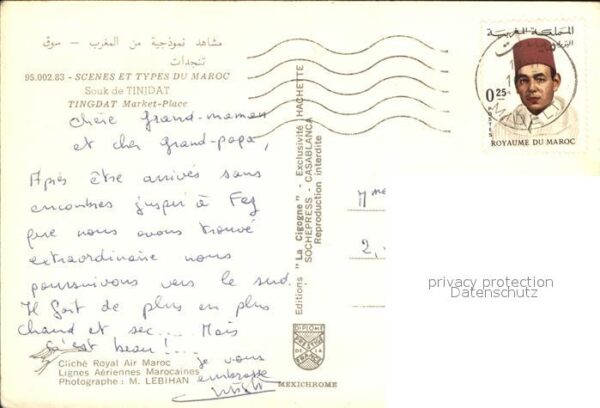 مشاهد نموذجية من المغرب - سوق
تنجدات
95.002.83 - SCENES ET TYPES DU MAROC
Souk de TINJDAT
TINGDAT Market-Place
Chère Grand-maman
et cher grand-papa,
Après être arrivés sans
encombres jusqu'à Fez
que nous avons trouvé
extraordinaire nous
poursuivons vers le sud.
Il fait de plus en plus
chaud et sec... Mais
c'est beau!...
je vous
embrasse
Cliché Royal Air Maroc
Lignes Aériennes Marocaines
Photographe : M. LEBIHAN
Editions "La Cigogne" - Exclusivité HACHETTE
SOCHEPRESS - CASABLANCA
Reproduction interdite
DIPLOME
PRESTIGE
DE LA
FRANCE
MEXICHROME
المملكة المغربية
0.25
POSTES
ROYAUME DU MAROC
7 me
2,
privacy protection
Datenschutz